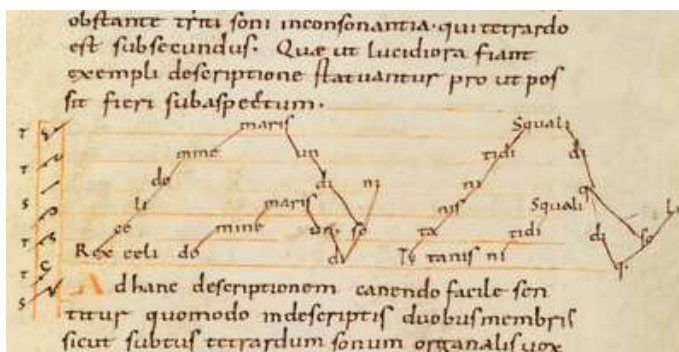 obstante triti soni inconsonantia. qui tetrardo
est subsecundus. Quæ ut lucidiora fiant
exempli descriptione statuantur pro ut pos
sit fieri subaspectum.
T maris Squali
T mine un tidi di
S do di ni ni q
T li maris nis Squali li
T ce mine un so ta tidi di so
T Rex celi do di Te tanis ni q.
S
Ad hanc descriptionem canendo facile sen
titur quomodo indescriptis duobus membris
sicut subtus tetrardum sonum organalis uox